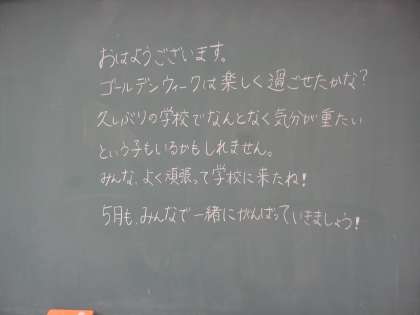 おはようございます。
ゴールデンウィークは楽しく過ごせたかな?
久しぶりの学校でなんとなく気分が重たい
という子もいるかもしれません。
みんな、よく頑張って学校に来たね!
5月も、みんなで一緒にがんばっていきましょう!